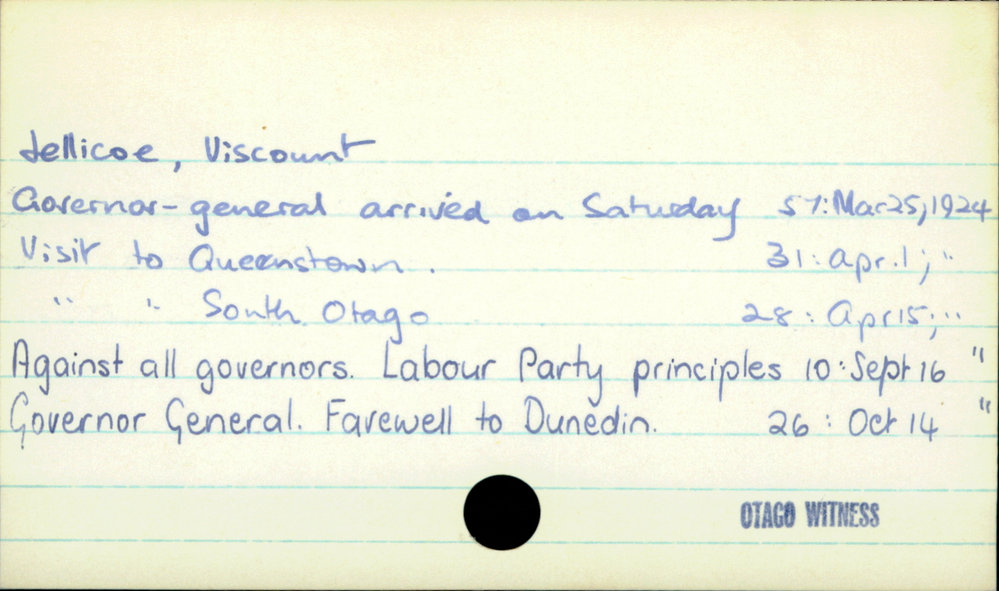 Jellicoe, Viscount
Governor-general arrived on Saturday 57:Mar25,1924
Visit to Queenstown. 31:Apr.1; "
" " South Otago 28:Apr15; "
Against all governors. Labour Party principles 10:Sept 16 "
Governor General. Farewell to Dunedin. 26: Oct 14 "
OTAGO WITNESS